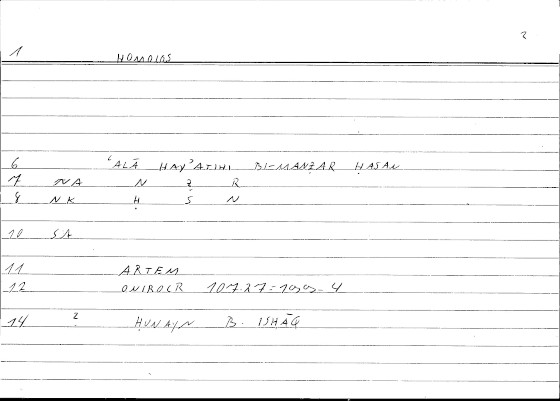 2
1 HOMOIOS
6 ʿALĀ HAYʾATIHI BI-MANẒAR ḤASAN
7 NA N Ẓ R
8 NK Ḥ S N
10 SA
11 ARTEM
12 ONIROCR 107.27
14 2 ḤUNAYN B. ISḤĀQ